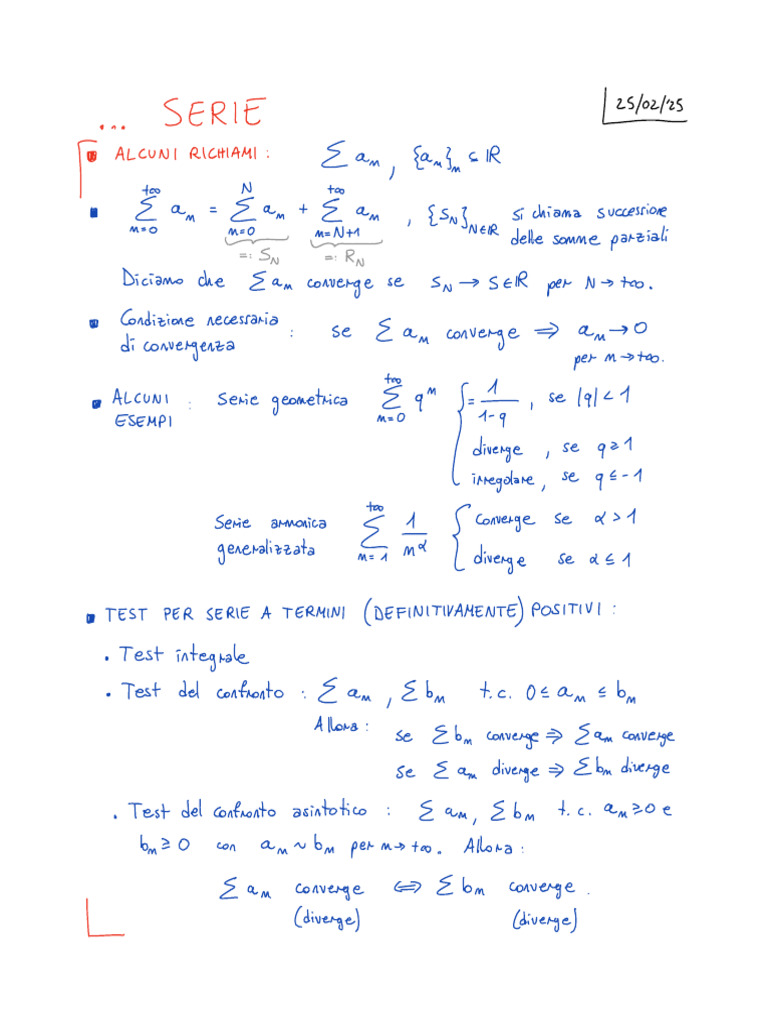 ... SERIE
25/02/'25
▪ ALCUNI RICHIAMI : ∑ aₙ , {aₙ}ₙ ⊆ ℝ
▪ ∑_{n=0}^{+∞} aₙ = ∑_{n=0}^{N} aₙ + ∑_{n=N+1}^{+∞} aₙ , {S_N}_{N∈ℝ} si chiama successione
=: S_N =: R_N delle somme parziali
Diciamo che ∑ aₙ converge se S_N → S ∈ ℝ per N → +∞.
▪ Condizione necessaria
di convergenza : se ∑ aₙ converge ⟹ aₙ → 0
per n → +∞.
▪ ALCUNI
ESEMPI : Serie geometrica ∑_{n=0}^{+∞} qⁿ { = 1/(1-q) , se |q| < 1
diverge , se q ≥ 1
irregolare, se q ≤ -1
Serie armonica
generalizzata ∑_{n=1}^{+∞} 1/n^α { converge se α > 1
diverge se α ≤ 1
▪ TEST PER SERIE A TERMINI (DEFINITIVAMENTE) POSITIVI :
• Test integrale
• Test del confronto : ∑ aₙ , ∑ bₙ t.c. 0 ≤ aₙ ≤ bₙ
Allora : se ∑ bₙ converge ⟹ ∑ aₙ converge
se ∑ aₙ diverge ⟹ ∑ bₙ diverge
• Test del confronto asintotico : ∑ aₙ, ∑ bₙ t.c. aₙ ≥ 0 e
bₙ ≥ 0 con aₙ ~ bₙ per n → +∞. Allora :
∑ aₙ converge ⟺ ∑ bₙ converge .
(diverge) (diverge)